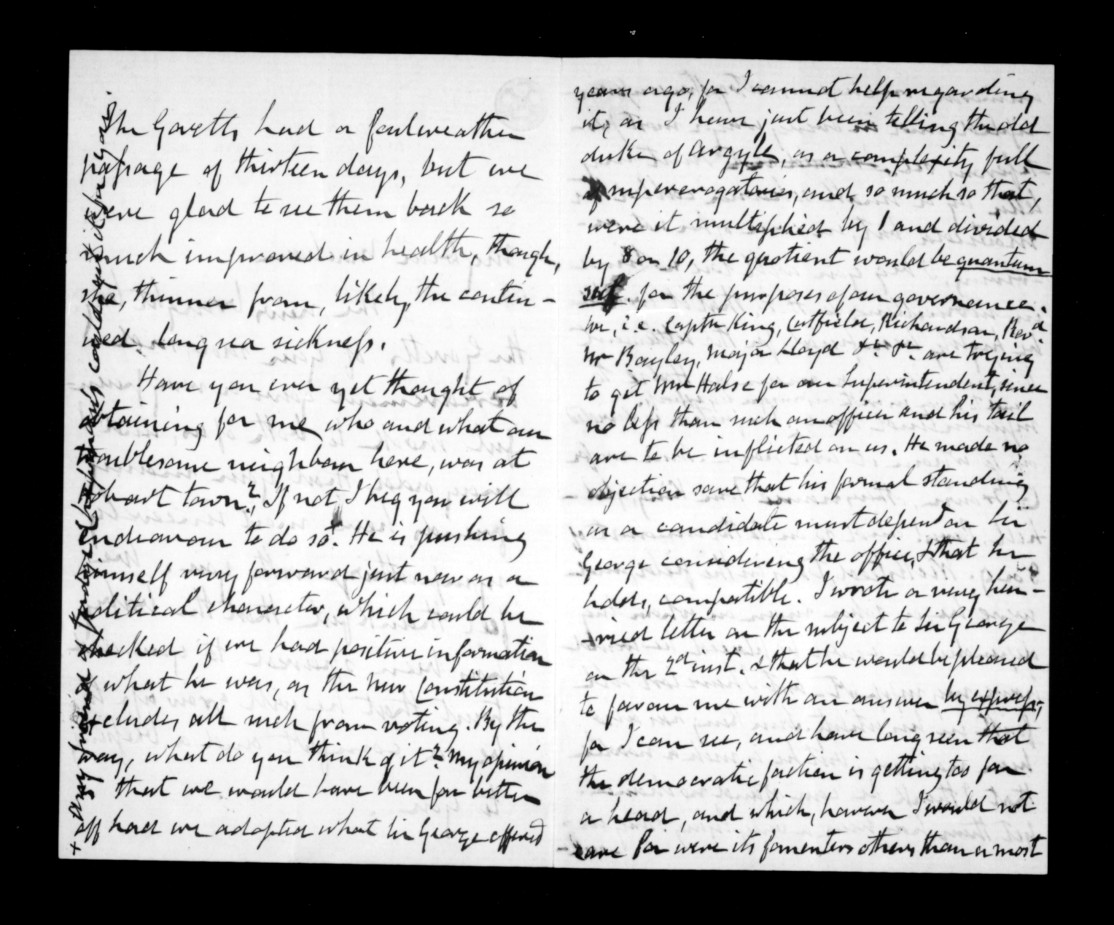 The Govetts had a foulweather
passage of thirteen days, but we
were glad to see them back so
much improved in health, though,
she, thinner from, likely, the contin-
ued long sea sickness.
Have you ever yet thought of
obtaining for me, who and what our
troublesome neighbour here, was at
Hobart town? If not I beg you will
endeavour to do so. He is pushing
himself very forward just now as a
political character, which could be
checked if we had positive information
what he was, as the new Constitution
excludes all such from voting. By the
way, what do you think of it? My opinion
that we would have been far better
off had we adopted what Sir George offered
years ago, for I cannot help regarding
it, as I have just been telling the old
duke of Argyll, as a complexity full
of supererogatories, and so much so that,
were it multiplied by 1 and divided
by 8 or 10, the quotient would be quantum
suf. for the purposes of our governance.
We, i.e. Captn King, Cutfield, Richardson, Revd
Mr Bayley, Major Lloyd &c. &c. are trying
to get Mr Halse for our Superintendent, since
no less than such an officer and his tail
are to be inflicted on us. He made no
objection save that his formal standing
as a candidate must depend on Sir
George considering the office, & that he
holds, compatible. I wrote a very hur-
-ried letter on the subject to Sir George
on the 2d inst. & that he would be pleased
to favour me with an answer by express,
for I can see, and have long seen that
the democratic faction is getting too far
a head, and which, however I would not
care for were its fomenters others than a most
+ any friend at
could get it for you.